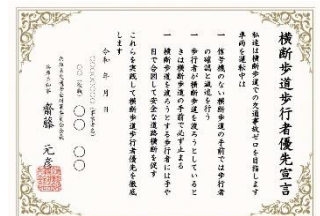 横断歩道歩行者優先宣言
私達は横断歩道での交通事故ゼロを目指します
車両を運転中は
一 信号機のない横断歩道の手前では歩行者
の確認と減速を行う
一 歩行者が横断歩道を渡ろうとしていると
きは横断歩道の手前で必ず止まる
一 横断歩道を渡ろうとする歩行者には手や
目で合図して安全な道路横断を促す
これらを実践して横断歩道歩行者優先を徹底
します
令和 年 月 日
○○(役職) ○○ ○○
兵庫県知事 齋藤 元彦